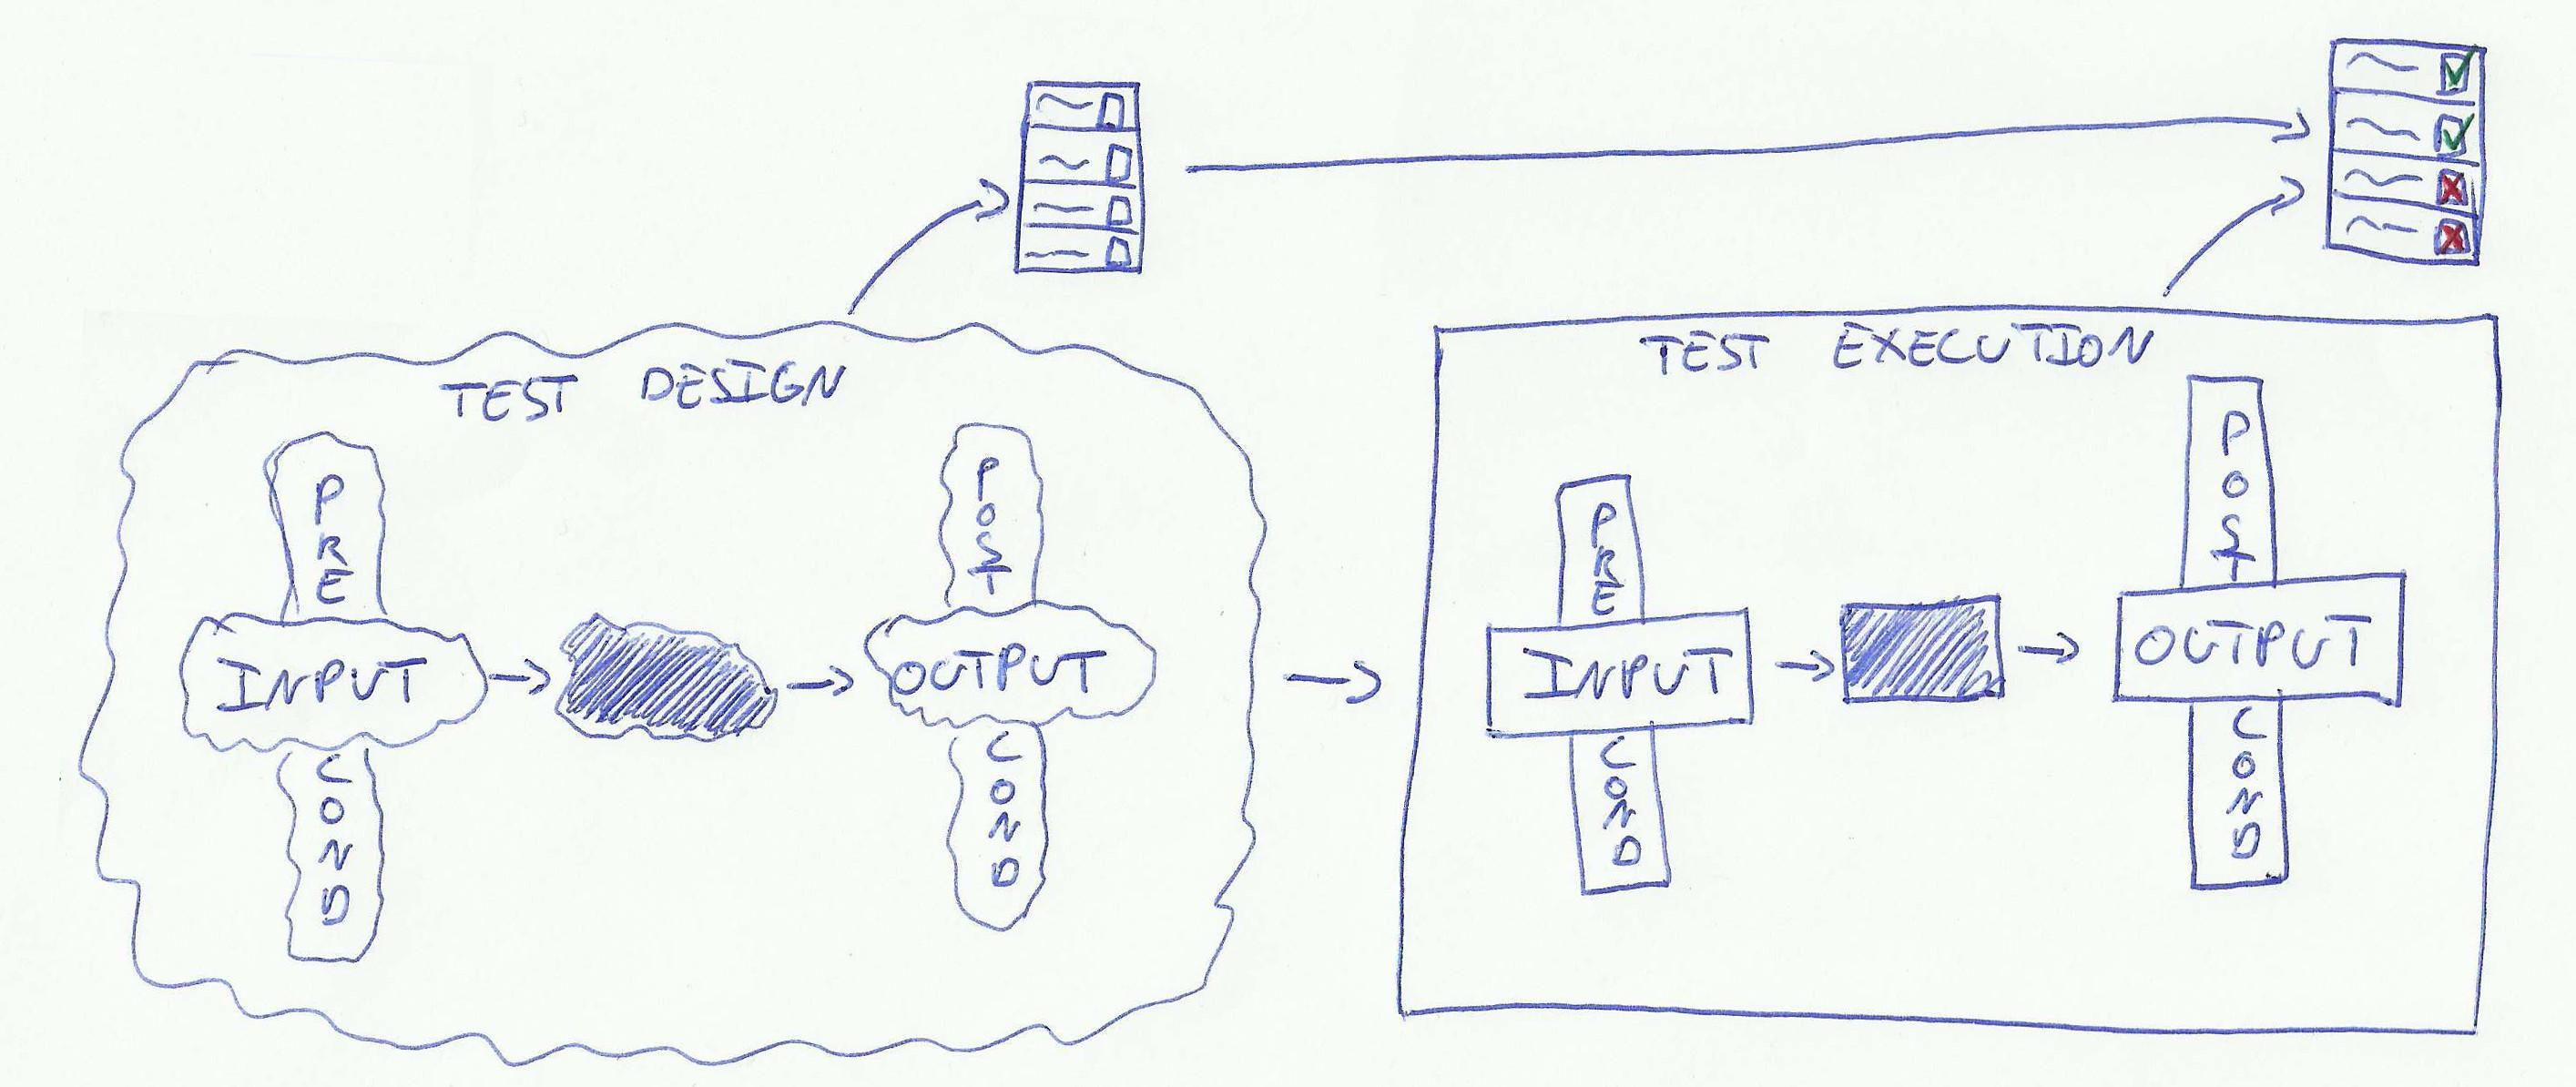 TEST DESIGN
PRE
INPUT
COND
POST
OUTPUT
COND
TEST EXECUTION
PRE
INPUT
COND
POST
OUTPUT
COND